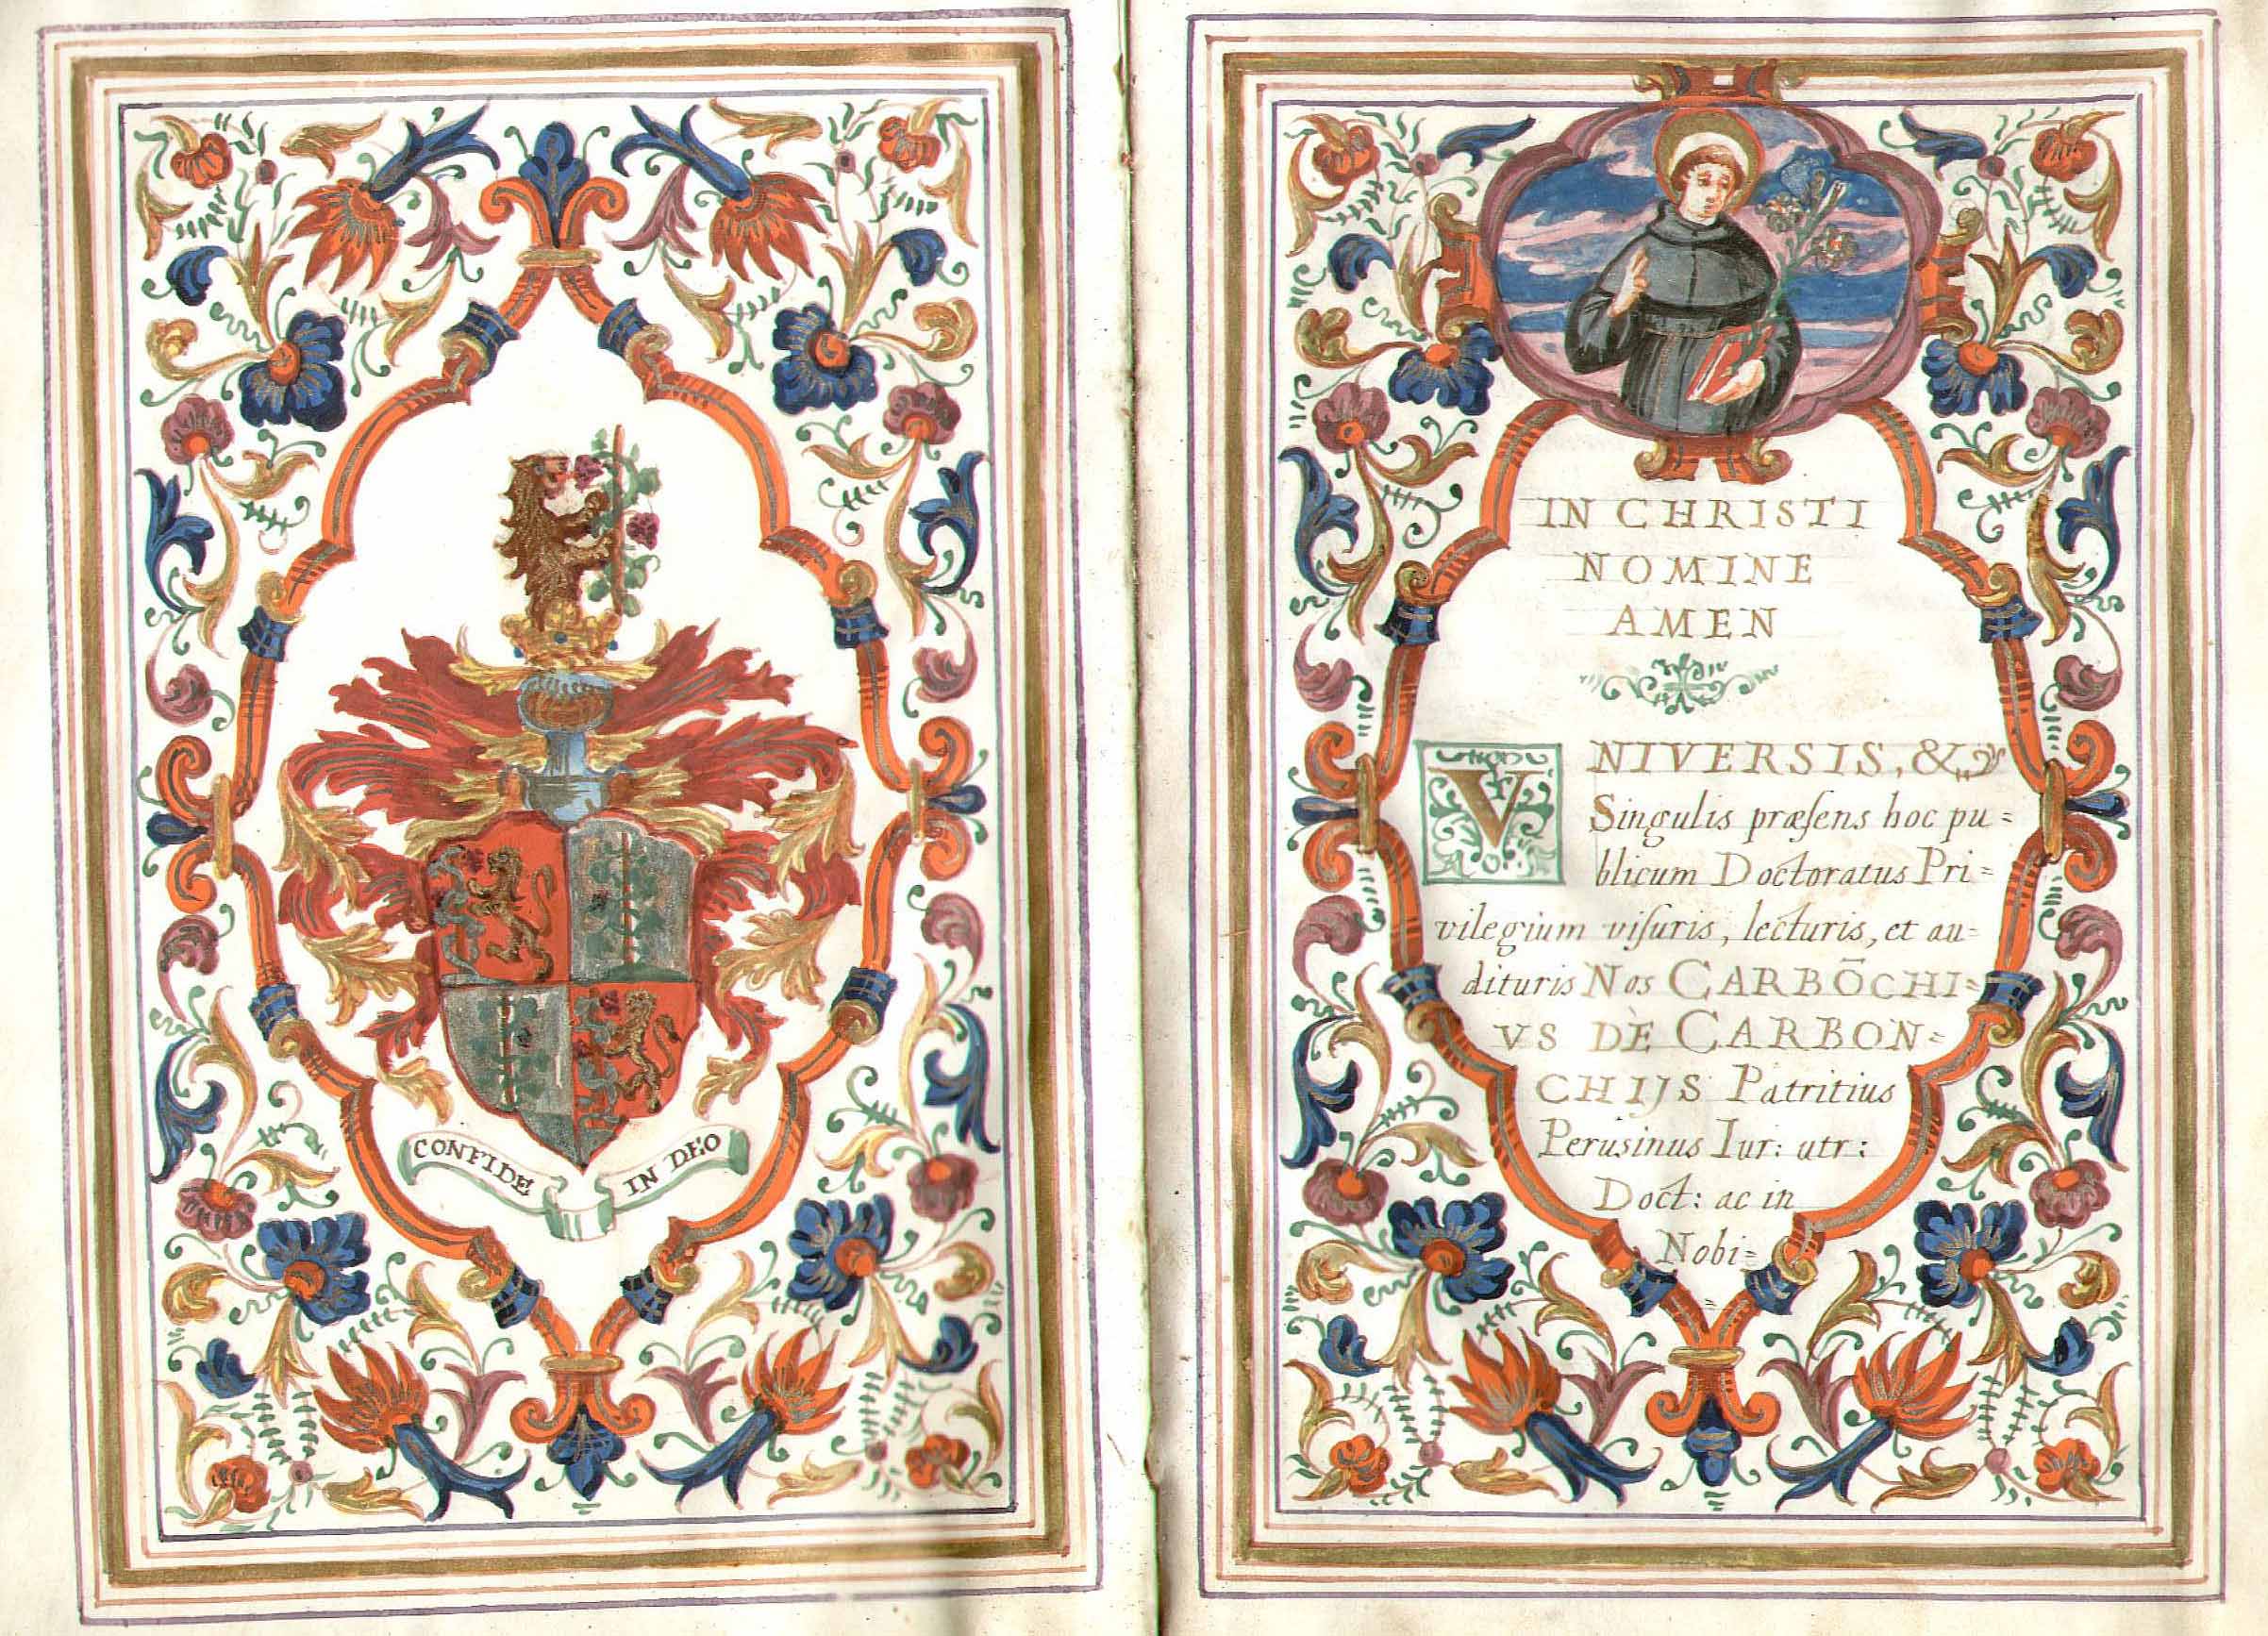 CONFIDE IN DEO
IN CHRISTI
NOMINE
AMEN
VNIVERSIS, &
Singulis præſens hoc pu=
blicum Doctoratus Pri=
vilegium viſuris, lecturis, et au=
dituris Nos CARBŌCHI=
VS DE CARBON=
CHIJS Patritius
Perusinus Iur: utr:
Doct: ac in
Nobi=